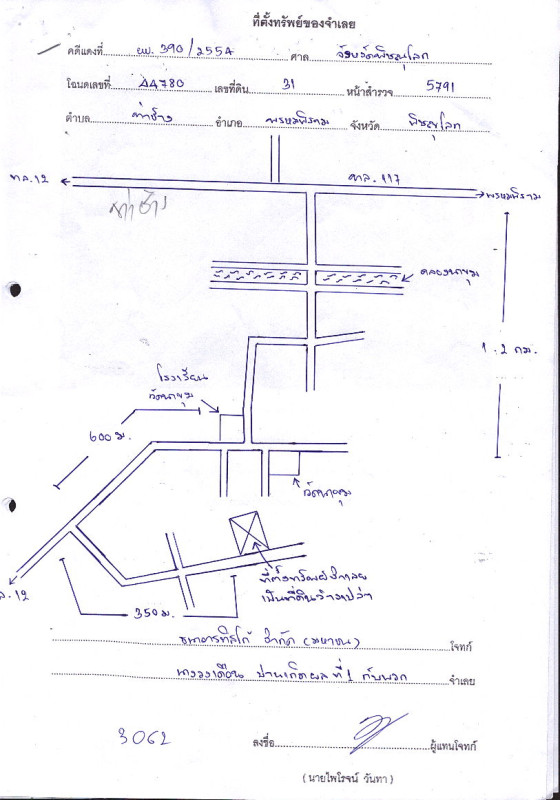 ที่ตั้งทรัพย์ของจำเลย
คดีแดงที่ ผบ. 390/2554 ศาล จังหวัดพิษณุโลก
โฉนดเลขที่ 44780 เลขที่ดิน 31 หน้าสำรวจ 5791
ตำบล ท่าช้าง อำเภอ พรหมพิราม จังหวัด พิษณุโลก
ทล.12
ทล. 117
พรหมพิราม
ท่าช้าง
1.2 กม.
โรงเรียน
600 ม.
350 ม.
ที่ตั้งทรัพย์จำเลย
เป็นที่ดินว่างเปล่า
ธนาคารทิสโก้ จำกัด (มหาชน) โจทก์
นางวงเดือน ปานเกิดผล ที่ 1 กับพวก จำเลย
3062
ลงชื่อ ผู้แทนโจทก์
(นายไพโรจน์ วันทา)